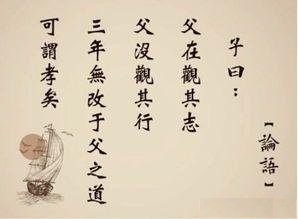 子曰：
父在觀其志
父沒觀其行
三年無改于父之道
可謂孝矣
【論語】